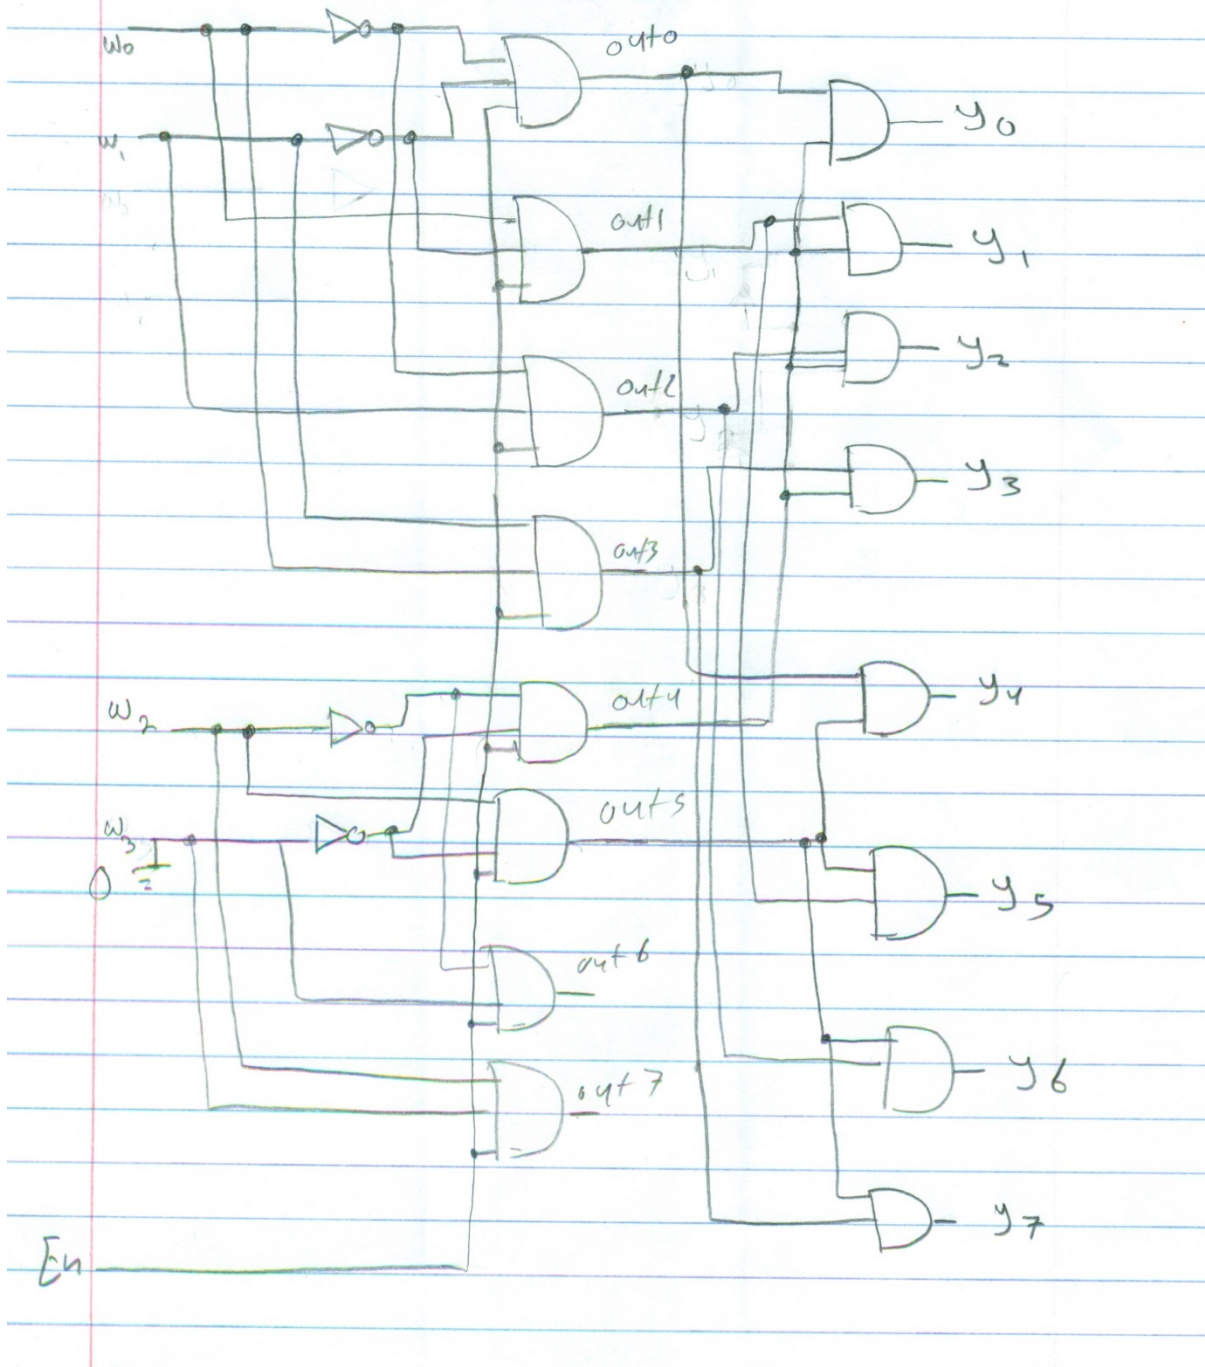 w0
out0
y0
w1
out1
y1
out2
y2
out3
y3
w2
out4
y4
w3
0
out5
y5
out6
y6
out7
y7
En